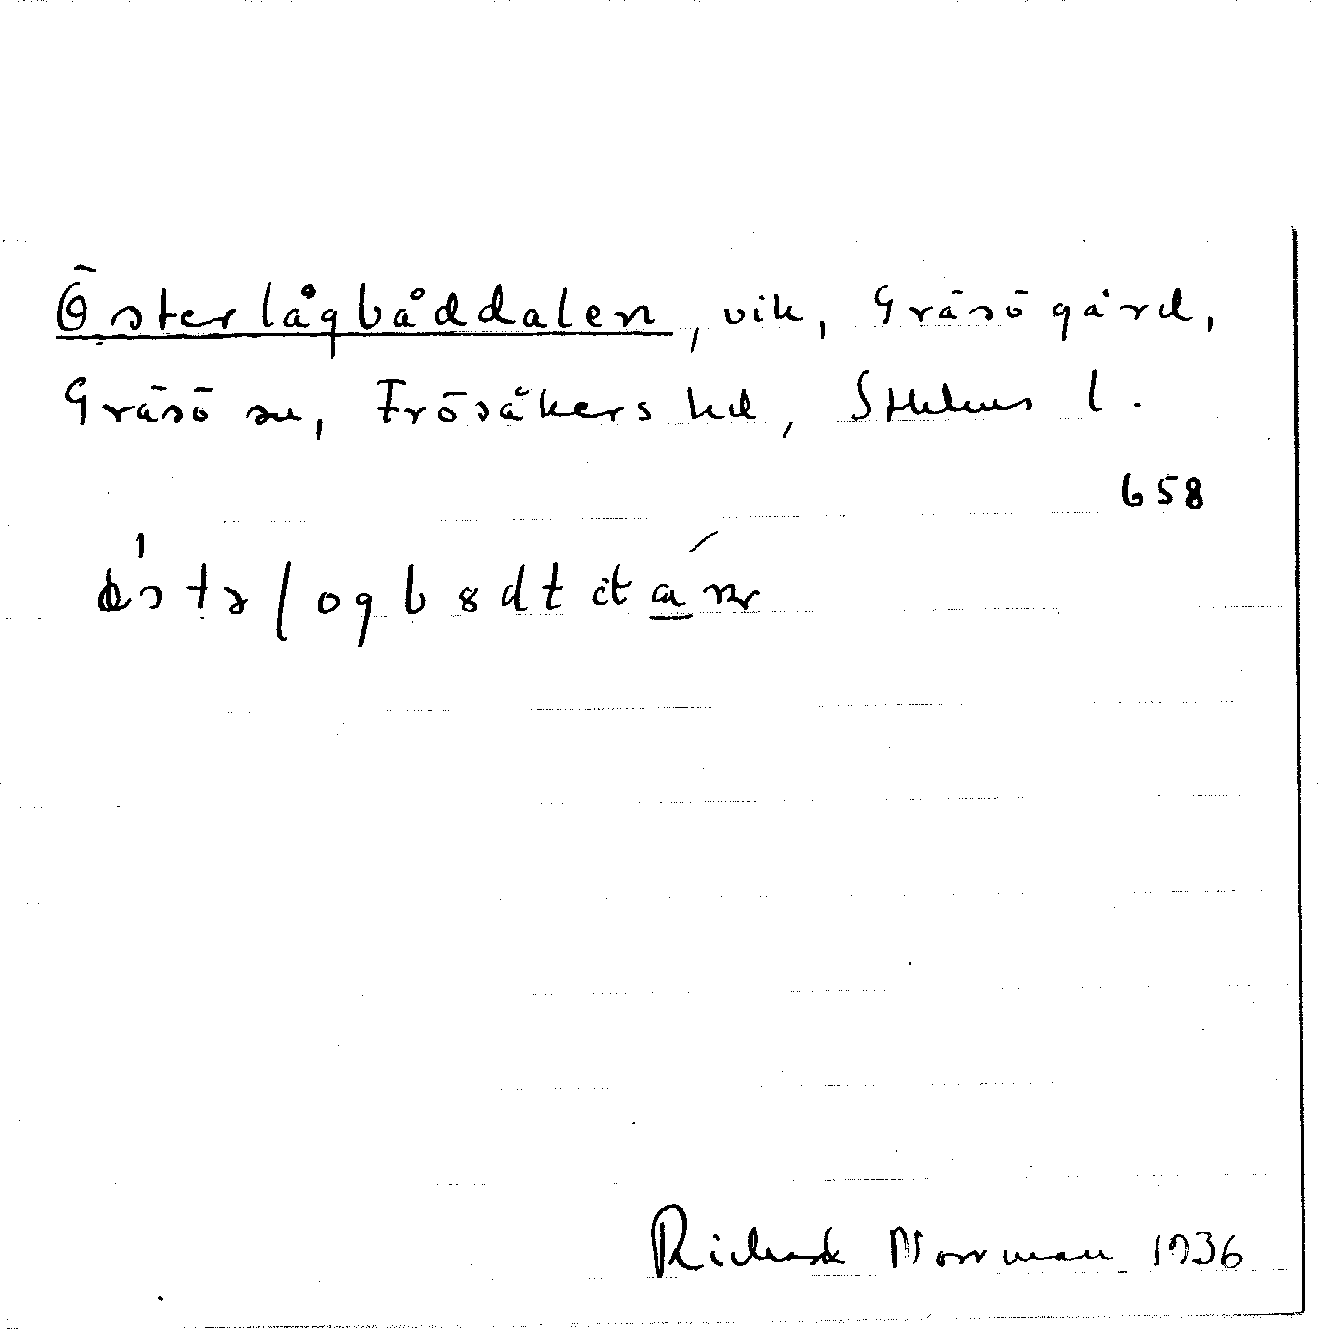 Österlågbåddalen, vik, Gräsö gård,
Gräsö sn, Frösåkers hd, Sthlms l.
658
Richard Norrman 1936